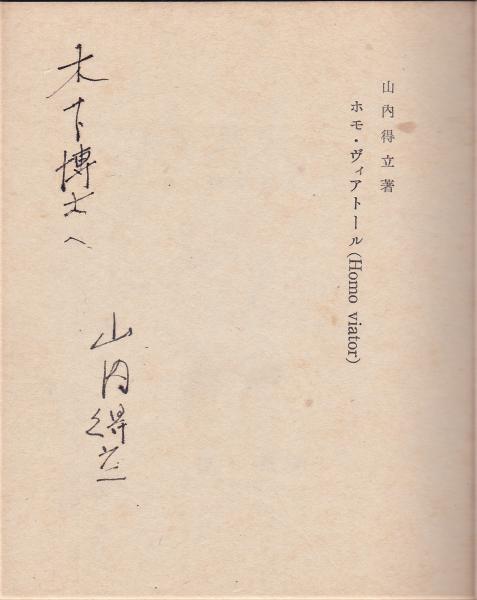 山内得立著
ホモ・ヴィアトール(Homo viator)
木下博士へ
山内得立